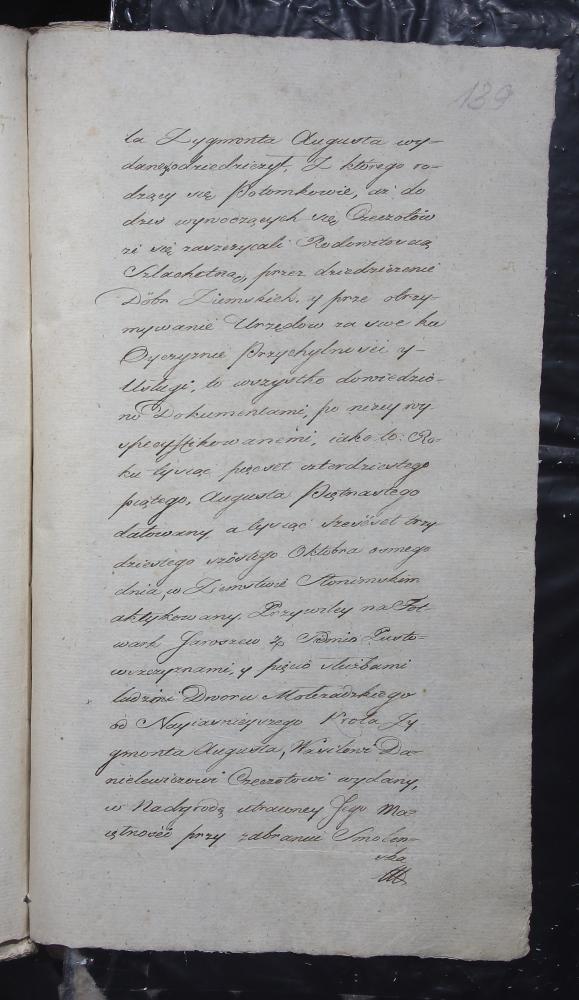 139
ła Zygmonta Augusta wy-
danego odziedziczył, Z którego ro-
dzący się Potomkowie, aż do
dziś wywodzących się Czeczotów
zaszczycali Rodowitością
Szlachetną, przez dziedziczenie
Dóbr Ziemskich, y prze otrzy-
mywanie Urzędów za swe ku
Oyczyznie Przychylności y
Usługi, to wszystko dowiedzio-
no Dokumentami, po niżey wy
specyffikowanemi, iako to: Ro-
ku tysiąc pięcset czterdziestego
piątego, Augusta Piętnastego
datowany a tysiąc sześćset trzy
dziestego szóstego Oktobra osmego
dnia, w Ziemstwie Słonimskim
aktykowany, Przywiley na Fol
wark Jaroszew z Siedmio Pusto-
wszczyznami, y pięcio służbami
ludzmi Dworu Mołczadzkiego
od Nayiasnieyszego Króla Zy
gmonta Augusta, Wasilewi Da-
nielewiczowi Czeczotowi wydany,
w Nadgrodę utraconey Jego Ma-
iętności przy zabraniu Smoleń-
ska